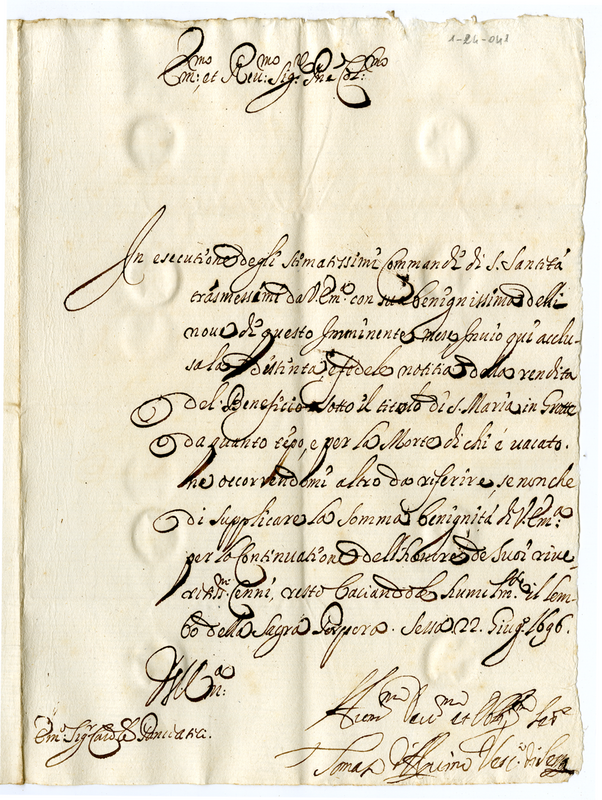 1-24-041
Em.mo et Reu.mo Sig.re P.ne Col.mo
In esecutione degli stimatissimi Commandi di S. Santità
trasmessimi da V. Em.a con sua benignissima delli
noue di questo Imminente mese Inuio qui acclu-
sa la distinta, e fedele notitia della rendita
del Beneficio sotto il titolo di S. Maria in Grotte
da quanto tẽpo, e per la Morte di chi è uacato.
ne occorrendomi altro da riferire, se non che
di supplicare la somma benignità di V. Em.a
per la Continuatione dell'honore de suoi riue-
ritiss.mi Cenni, resto baciandole humilm.te il lem-
bo della Sagra Porpora. Sessa 22. Giug.o 1696.
Di V. Em.a
Em.o Sig.r Card.le Panciatici.
Hum.mo Deu.mo et Oblig.mo Ser.e
Tomaso d'Aquino Vesc.o di Sessa